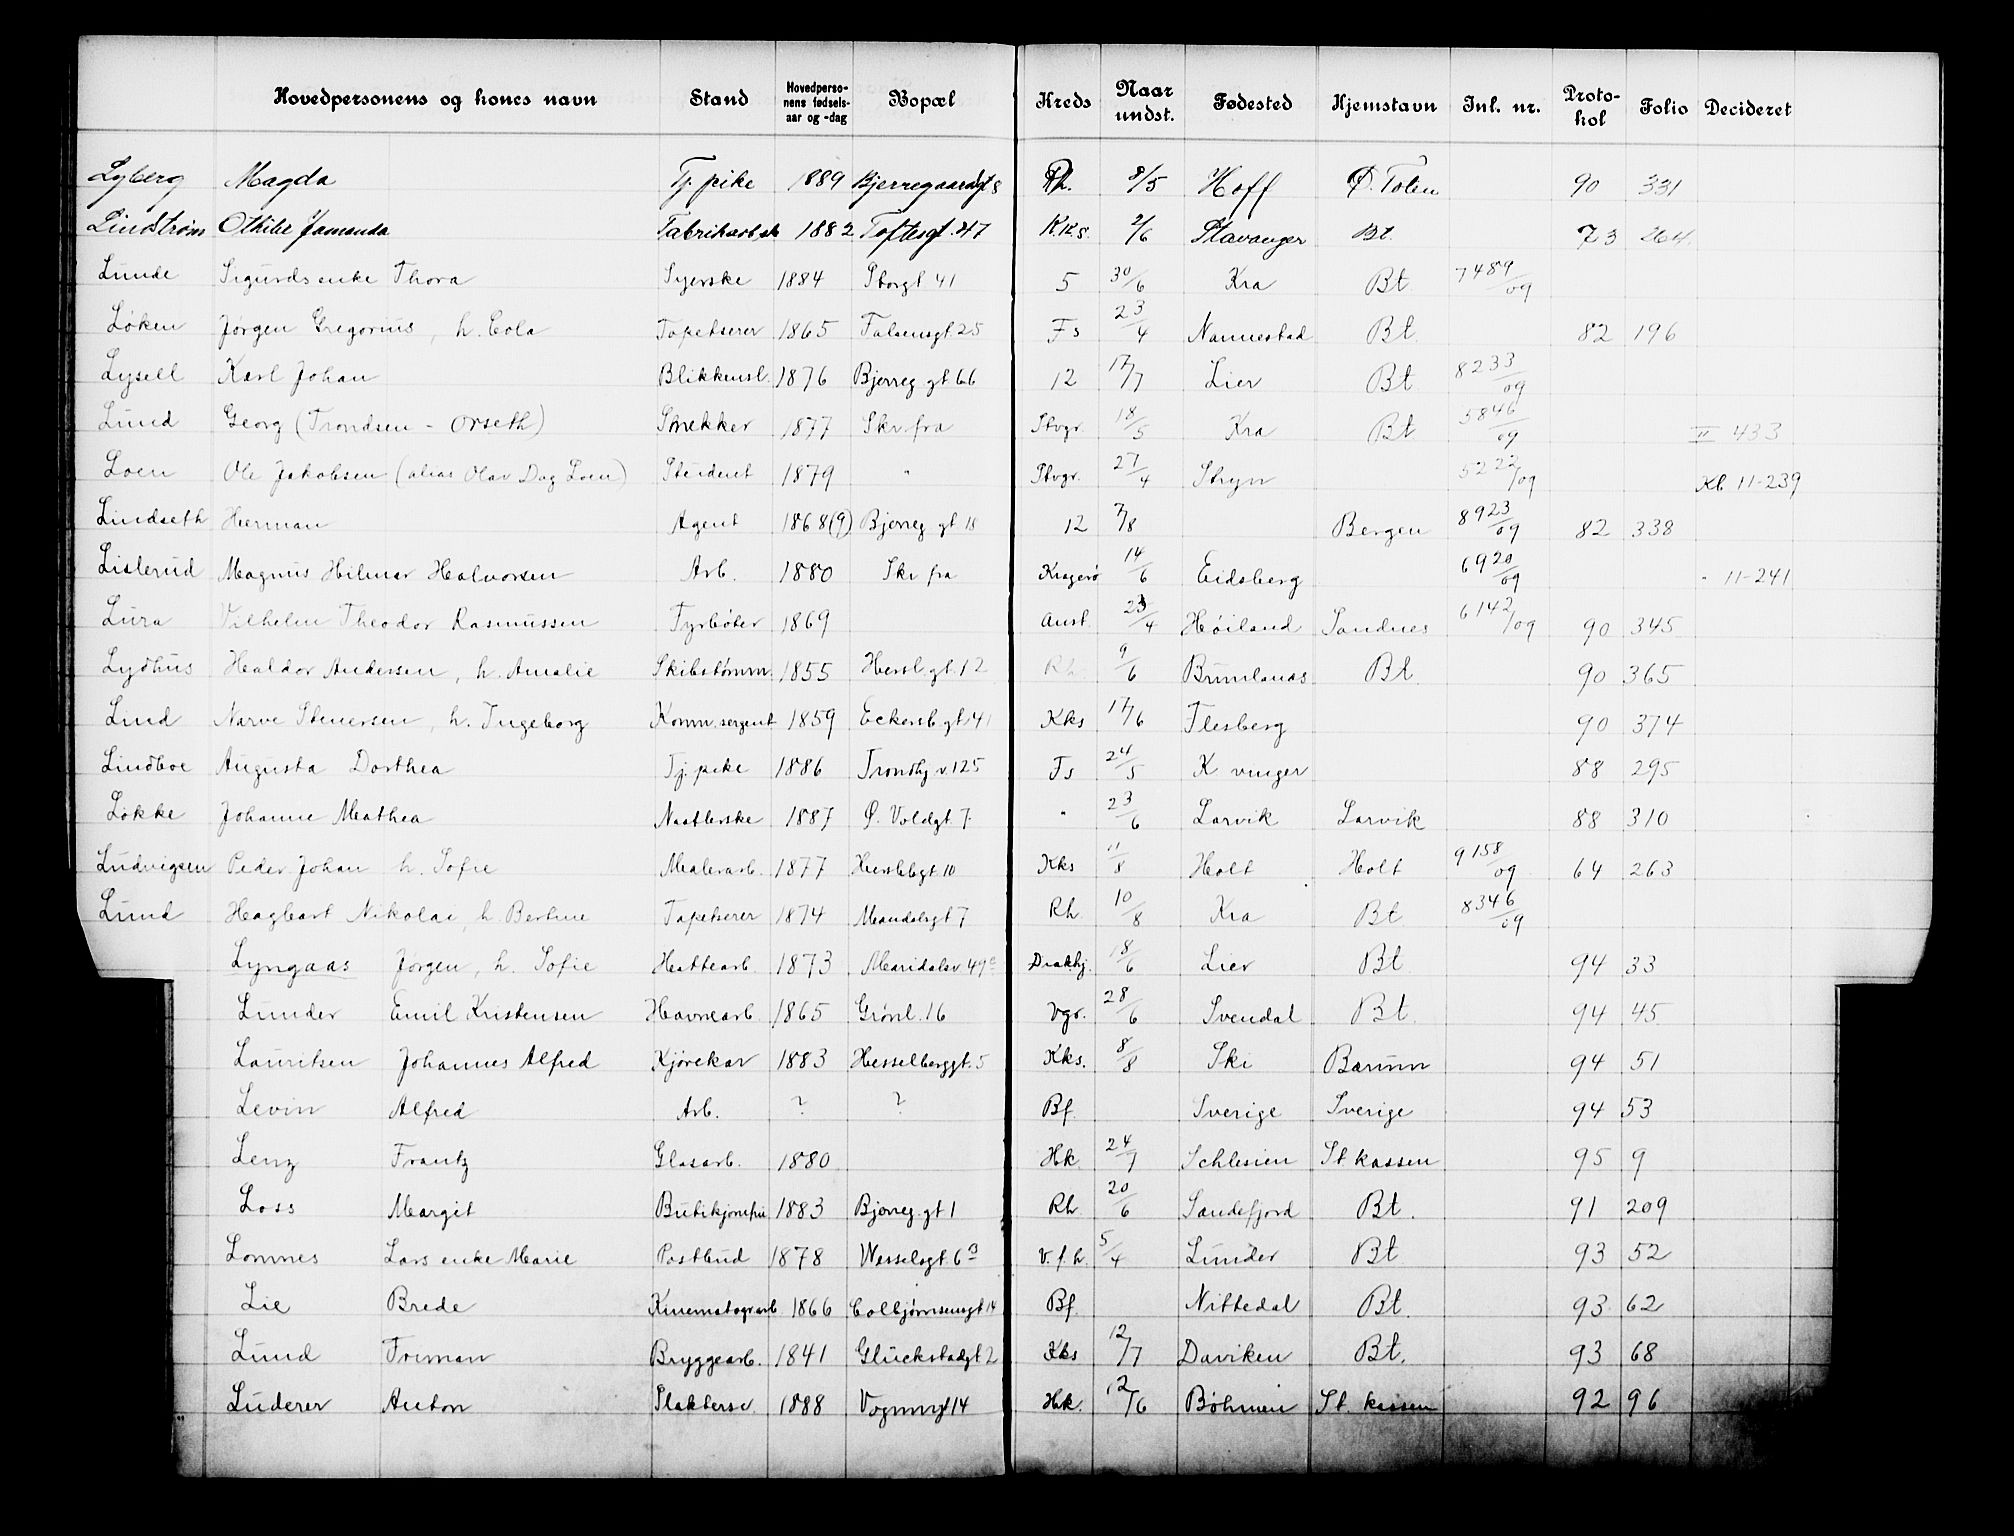 Hovedpersonens og kones navn Stand Hovedpersonens fødselsaar og -dag Bopæl Kreds Naar undst. Fødested Hjemstavn Inl. nr. Protokol Folio Decideret
Lyberg Magda Tj. pike 1889 Bjerregaardgt 8 Rh. 8/5 Hoff Ø. Toten 90 331
Lindstrøm Othilie Jamanda Fabrikarbsk 1882 Toftesgt. 47 K.Ks. 2/6 Stavanger Bt. 73 264
Lunde Sigurds enke Thora Syerske 1884 Storgt 41 5 30/6 Kra Bt. 7489/09
Løken Jørgen Gregorius, h. Cola Tapetserer 1865 Falsensgt. 25 Fs 23/4 Nannestad Bt. 82 196
Lysell Karl Johan Blikkensl. 1876 Bjerreg gt 66 12 17/7 Lier Bt. 8233/09
Lund Georg (Trondsen - Orseth) Snekker 1877 Skr. fra Stvgr. 18/5 Kra Bt. 5846/09 II 433
Loen Ole Jakobsen (alias Olav Dag Loen) Student 1879 " Stvgr. 27/4 Stryn 5222/09 Kb 11-239
Lindseth Herman Agent 1868(9) Bjerreg gt 18 12 7/8 Bergen 8923/09 82 338
Lislerud Magnus Hilmar Halvorsen Arb. 1880 Skr fra Kragerø 14/6 Eidsberg 6920/09 " 11-241
Lura Vilhelm Theodor Rasmussen Fyrbøter 1869 Aust. 23/4 Høiland Sandnes 6142/09 90 345
Lydhus Haldor Andersen, h. Amalie Skibstømm. 1855 Hersl. gt. 12 Rh. 9/6 Brunlanæs Bt. 90 365
Lind Narve Stenersen, h. Ingeborg Komm. sergent 1859 Eckersb. gt 41 Kks 17/6 Flesberg 90 374
Lindboe Augusta Dorthea Tj. pike 1886 Trondhj v. 125 Fs 24/5 K vinger 88 295
Løkke Johanne Mathea Naatlerske 1887 Ø. Voldgt 7. " 23/6 Larvik Larvik 88 310
Ludvigsen Peder Johan h. Sofie Malerarb. 1877 Herslebgt. 10 Kks 11/8 Holt Holt 9158/09 64 263
Lund Hagbart Nikolai, h. Bertine Tapetserer 1874 Mandalsgt 7 Rh. 10/8 Kra Bt. 8346/09
Lyngaas Jørgen, h. Sofie Hattearb. 1873 Maridalsv 49e Diakhj. 18/6 Lier Bt. 94 33
Lunder Emil Kristensen Havnearb. 1865 Grønl. 16 Vgr. 28/6 Svendal Bt. 94 45
Lauritsen Johannes Alfred Kjørekar 1883 Hesselberggt. 5 Kks. 8/8 Ski Bærum 94 51
Levin Alfred Arb. ? ? Bf. Sverige Sverige 94 53
Lenz Frantz Glasarb. 1880 Hk. 24/7 Schlesien St. kassen 95 9
Loss Margit Butikjomfru 1883 Bjerreg. gt 1 Rh. 20/6 Sandefjord Bt. 91 209
Lomnes Lars enke Marie Postbud 1878 Wesselsgt. 6 B V. f. h. 5/4 Lunder Bt. 93 52
Lie Brede Kinematografarb 1866 Colbjørnsensgt 14 Bf. Nittedal Bt. 93 62
Lund Troman Bryggearb. 1841 Glückstadgt 2 Kks 12/7 Daviken Bt. 93 68
Luderer Anton Slaktersv. 1888 Vognmgt 14 Hk. 12/6 Bøhmen St. kassen 92 96